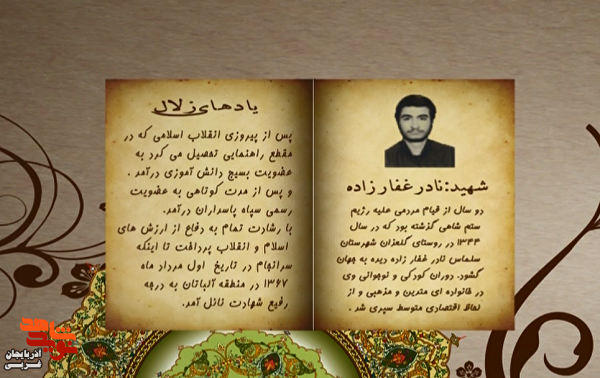 شهید:نادر غفار زاده
دو سال از قیام مردمی علیه رژیم
ستم شاهی گذشته بود که در سال
۱۳۴۴ در روستای گلعزان شهرستان
سلماس نادر غفار زاده دیده به جهان
گشود. دوران کودکی و نوجوانی وی
در خانواده ای متدین و مذهبی و از
لحاظ اقتصادی متوسط سپری شد .
یادهای زلال
پس از پیروزی انقلاب اسلامی که در
مقطع راهنمایی تحصیل می کرد به
عضویت بسیج دانش آموزی درآمد .
و پس از مدت کوتاهی به عضویت
رسمی سپاه پاسداران درآمد.
با رشادت تمام به دفاع از ارزش های
اسلام و انقلاب پرداخت تا اینکه
سرانجام در تاریخ اول مرداد ماه
۱۳۶۷ در منطقه آلباتان به درجه
رفیع شهادت نائل آمد.
آذربایجان
غربی